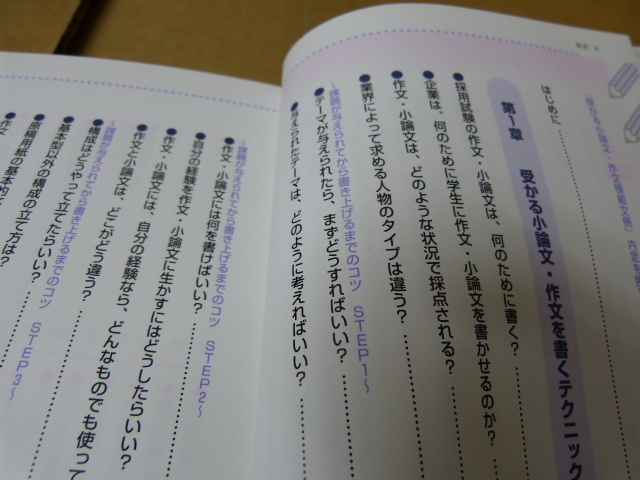 目次 4
『受かる小論文・作文模範文例』 内定を
はじめに
第1章 受かる小論文・作文を書くテクニック
●採用試験の作文・小論文は、何のために書く?
●企業は、何のために学生に作文・小論文を書かせるのか?
●作文・小論文は、どのような状況で採点される?
●業界によって求める人物のタイプは違う?
~課題が与えられてから書き上げるまでのコツ STEP1~
●テーマが与えられたら、まずどうすればいい?
●与えられたテーマは、どのように考えればいい?
~課題が与えられてから書き上げるまでのコツ STEP2~
●作文・小論文には何を書けばいい?
●自分の経験を作文・小論文に生かすにはどうしたらいい?
●作文・小論文には、自分の経験なら、どんなものでも使って
●作文と小論文は、どこがどう違う?
~課題が与えられてから書き上げるまでのコツ STEP3~
●構成はどうやって立てたらいい?
●基本型以外の構成の立て方は?
●原稿用紙の基本の
●作文